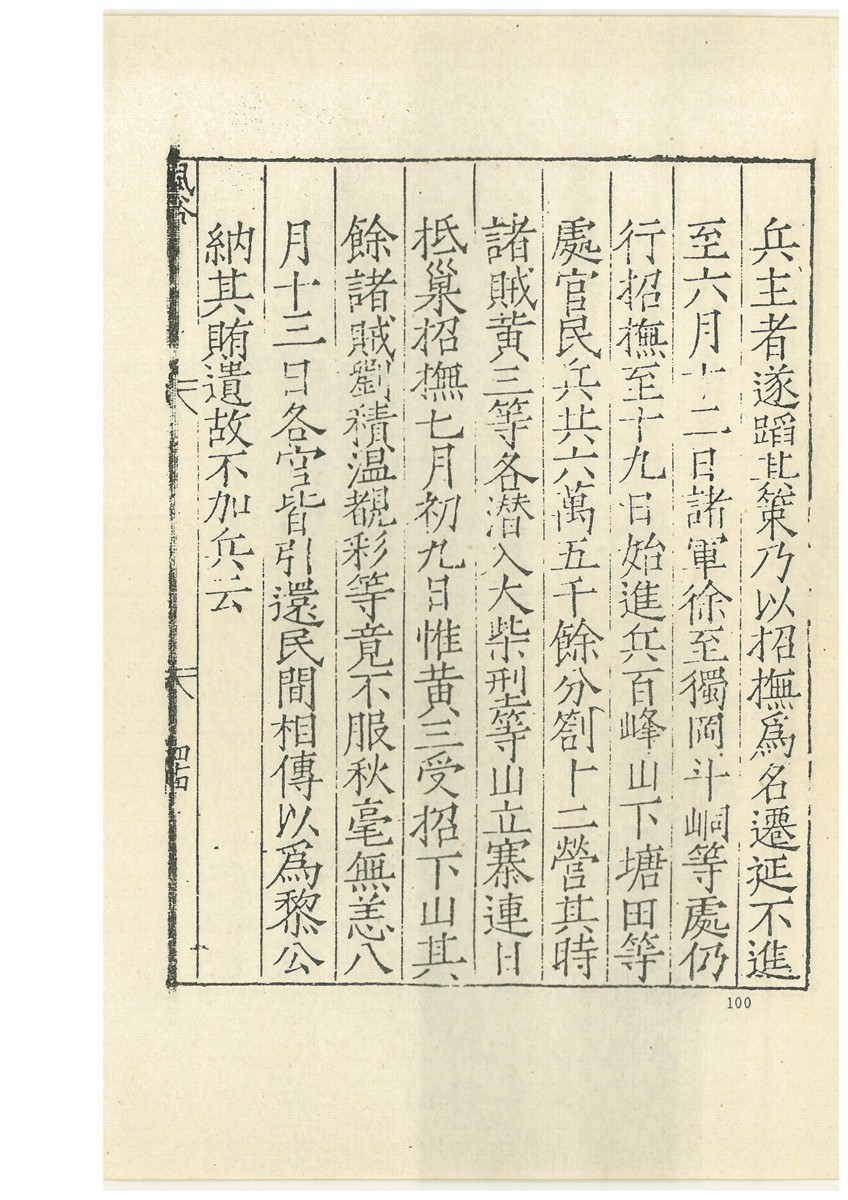 兵主者遂蹈其策乃以招撫爲名遷延不進
至六月十二日諸軍徐至獨岡斗峒等處仍
行招撫至十九日始進兵百峰山下塘田等
處官民兵共六萬五千餘分劄十二營其時
諸賊黃三等各潜入大柴型等山立寨連日
抵巢招撫七月初九日惟黃三受招下山其
餘諸賊劉積温覩彩等竟不服秋毫無恙八
月十三日各官皆引還民間相傳以爲黎公
納其賄遺故不加兵云
風俗
100